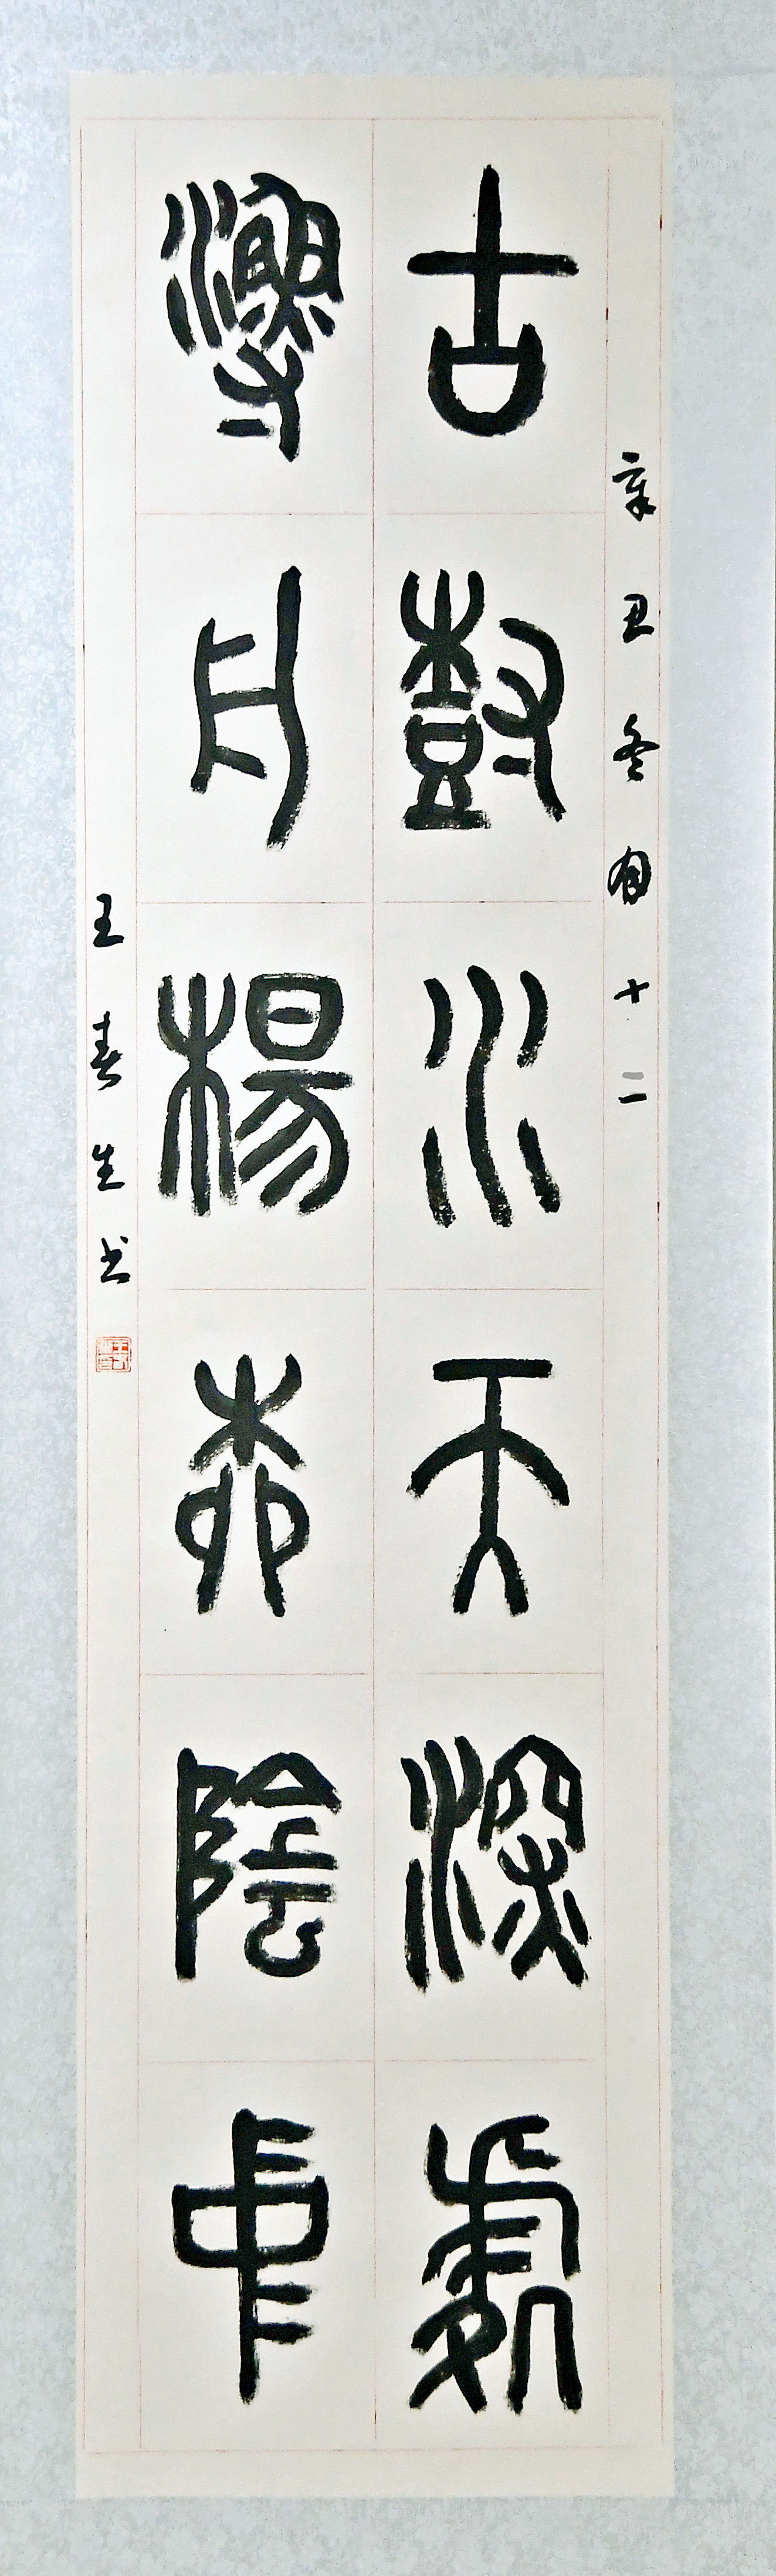 辛丑冬月十二
古樹水天深處
漁舟楊柳陰中
王春生书